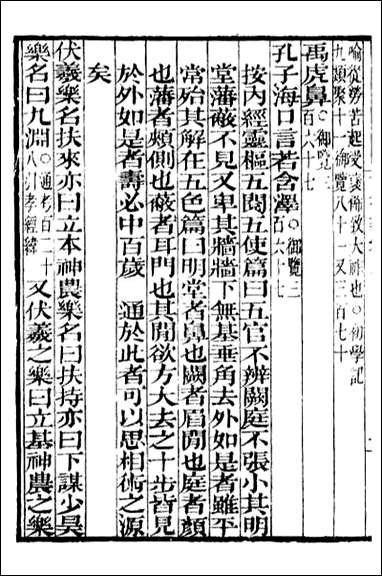 喻從勞苦起受衰備致大神也○初學記
九類聚十一御覽八十一又三百七十
禹虎鼻○御覽三百六十七
孔子海口言若含澤○御覽三百六十七
按内經靈樞五閱五使篇曰五官不辨闕庭不張小其明
堂藩蔽不見又卑其牆牆下無基垂角去外如是者雖平
常殆其解在五色篇曰明堂者鼻也闕者眉閒也庭者顏
也藩者頰側也蔽者耳門也其閒欲方大去之十步皆見
於外如是者壽必中百歲 通於此者可以思相術之源
矣
伏羲樂名扶來亦曰立本神農樂名曰扶持亦曰下謀少昊
樂名曰九淵○通考百二十八引孝經緯 又伏羲之樂曰立基神農之樂